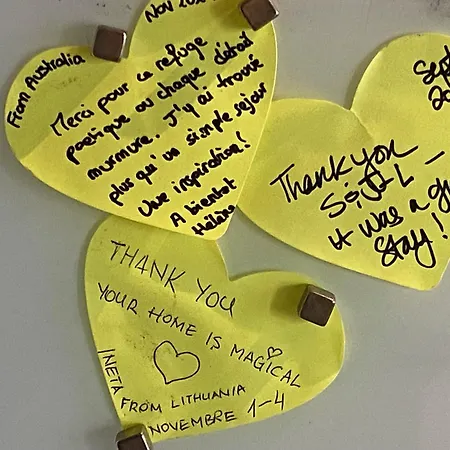 From Australia
Nov
Merci pour ce refuge
poétique où chaque détail
murmure. J'y ai trouvé
plus qu'un simple séjour
Une inspiration!
A bientôt
Hélène
Thank you
S & L –
it was a
stay!
THANK YOU
YOUR HOME IS MAGICAL
INETA
FROM LITHUANIA
NOVEMBRE 1-4